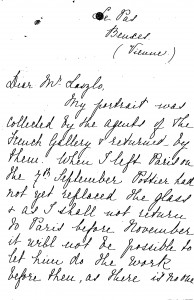 Le Pas
Bonces
(Vienne)
Dear Mr Laszlo,
My portrait was
collected by the agents of the
French Gallery & returned by
them. When I left Paris on
the 7th September Pottier had
not yet replaced the glass
& as I shall not return
to Paris before November
it will not be possible to
let him do the work
before then, as there is